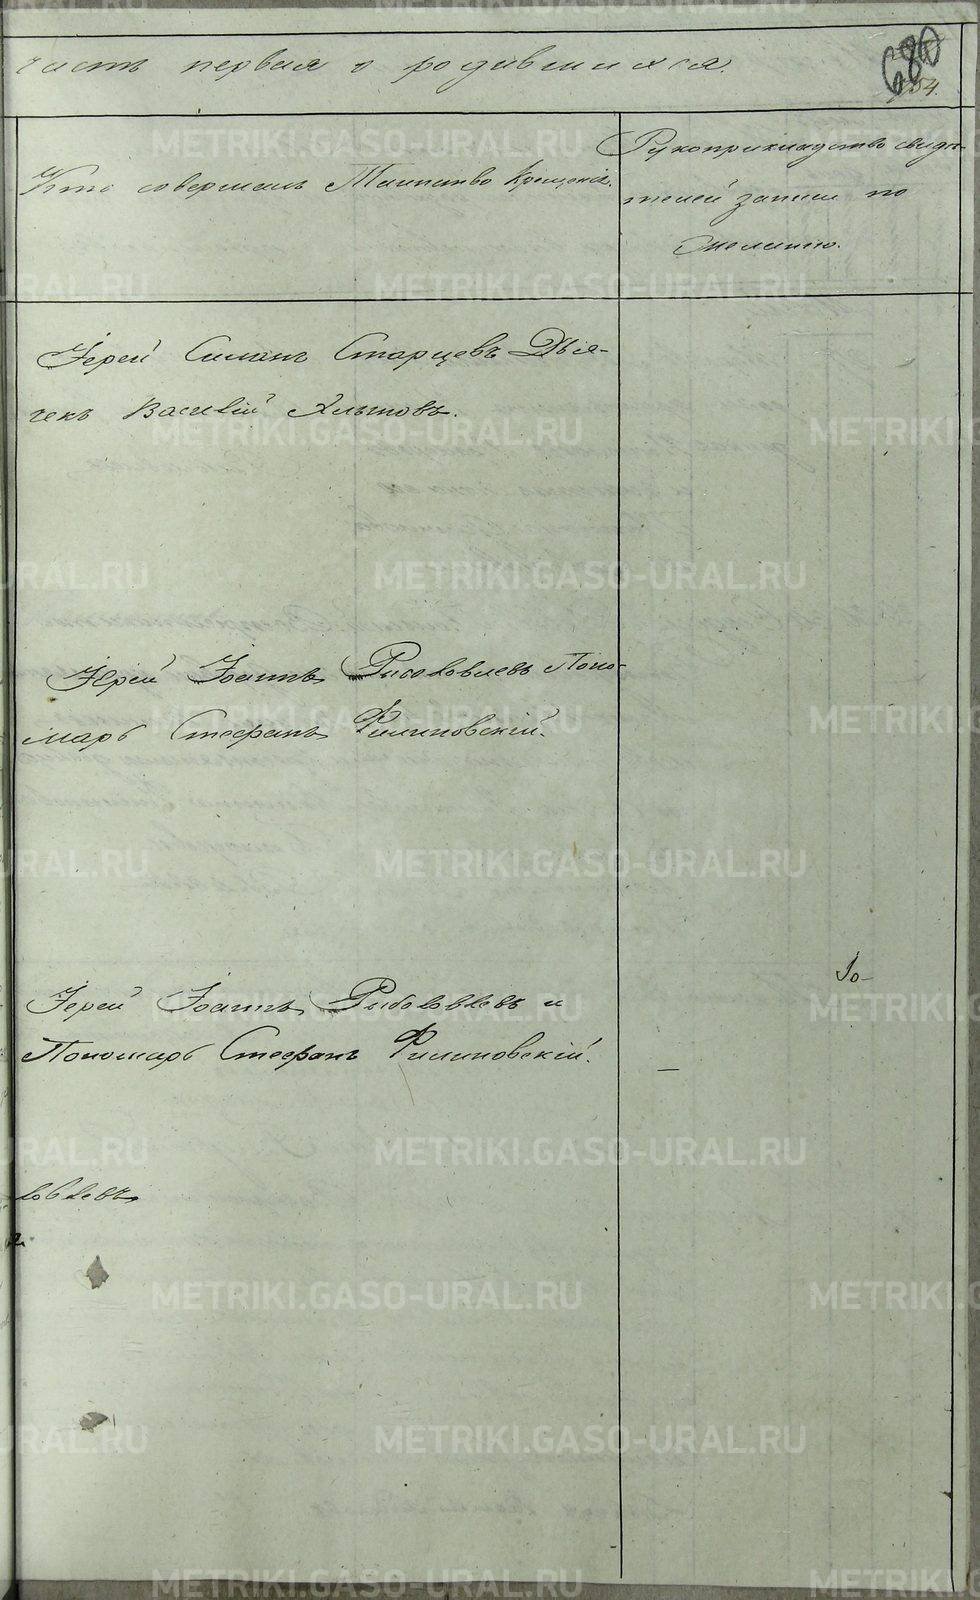 часть первая о родившихся.
680
Кто совершалъ Таинство Крещенія.
Рукоприкладство свидѣ-
телей записи по
желанію.
Іерей Симеонъ Старцевъ Дья-
чекъ Василій Хлытовъ.
Іерей Іоаннъ Рыболовлевъ Поно-
марь Стефанъ Филиповскій.
Іерей Іоаннъ Рыболовлевъ и
Пономарь Стефанъ Филиповскій.
ловлевъ
METRIKI.GASO-URAL.RU